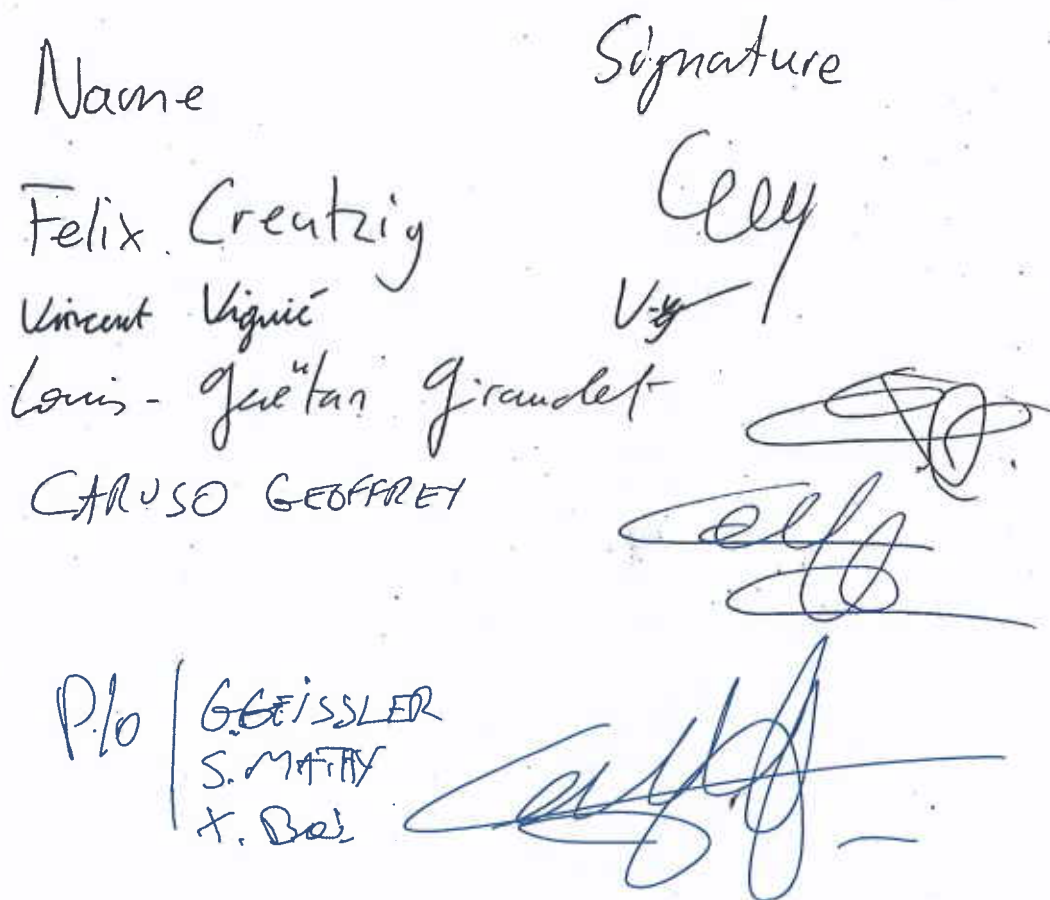 Name Signature
Felix Creutzig
Vincent Viguié
Louis-Gaëtan Giraudet
CARUSO GEOFFREY
P/o G.GEISSLER
S. MATHY